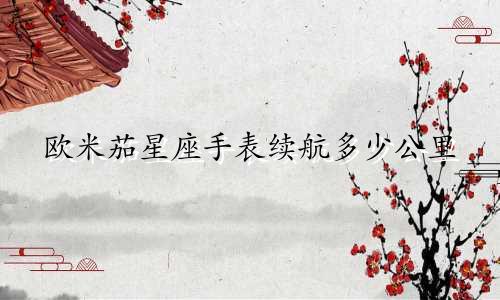 欧米茄星座手表续航多少公里